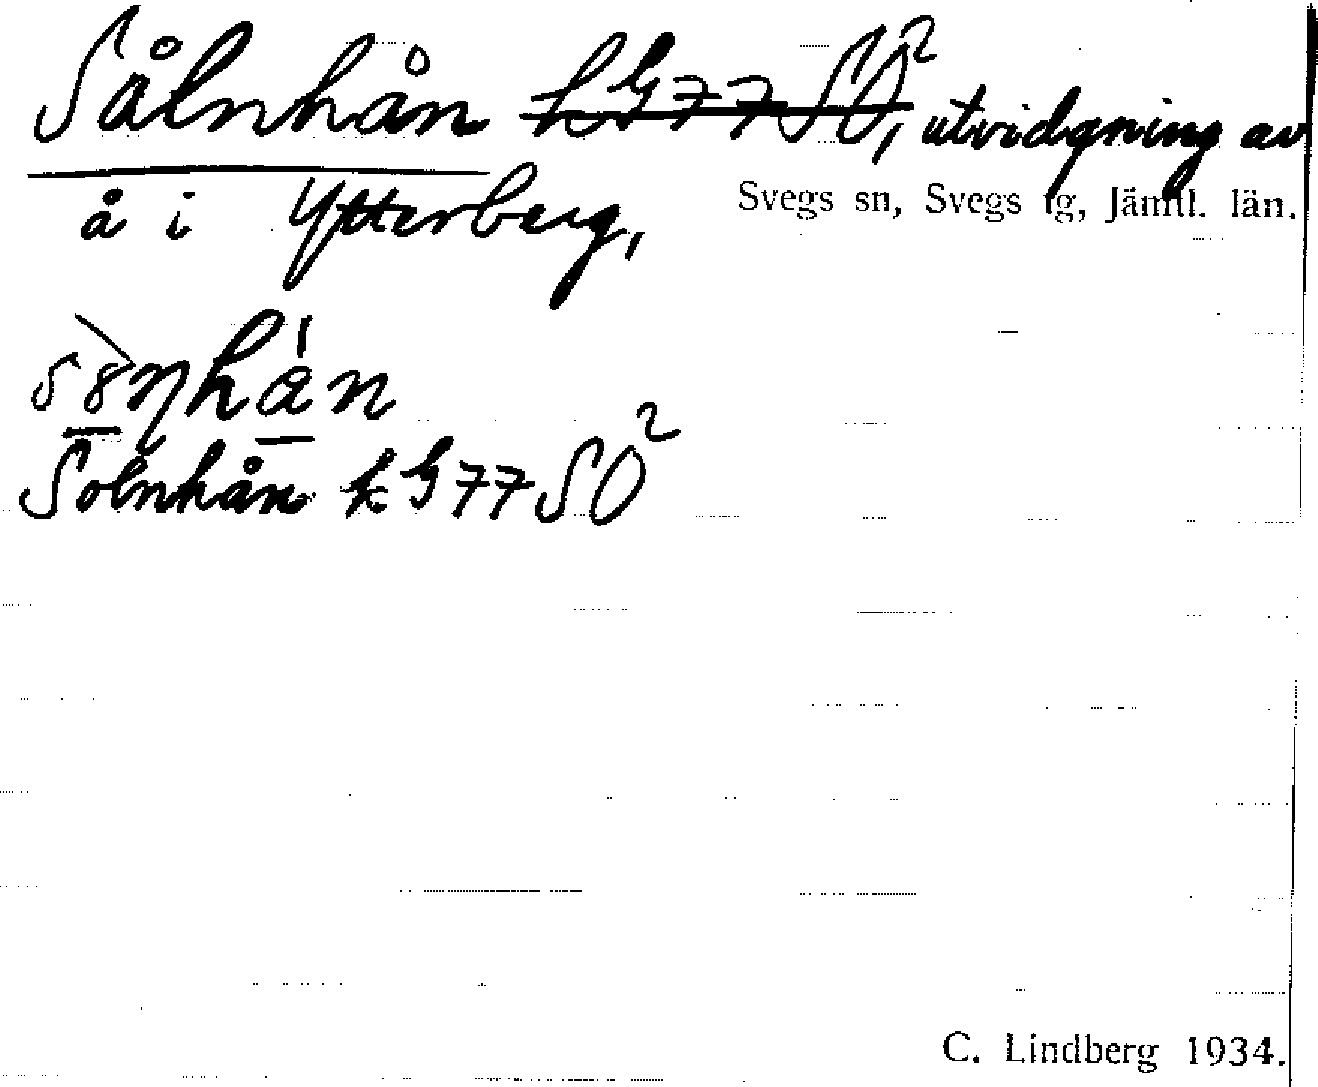 Sålnhån ~~k G77SO²~~, utvidgning av
å i Ytterberg,
Svegs sn, Svegs tg, Jämtl. län.
Solnhån k G77SO²
C. Lindberg 1934.